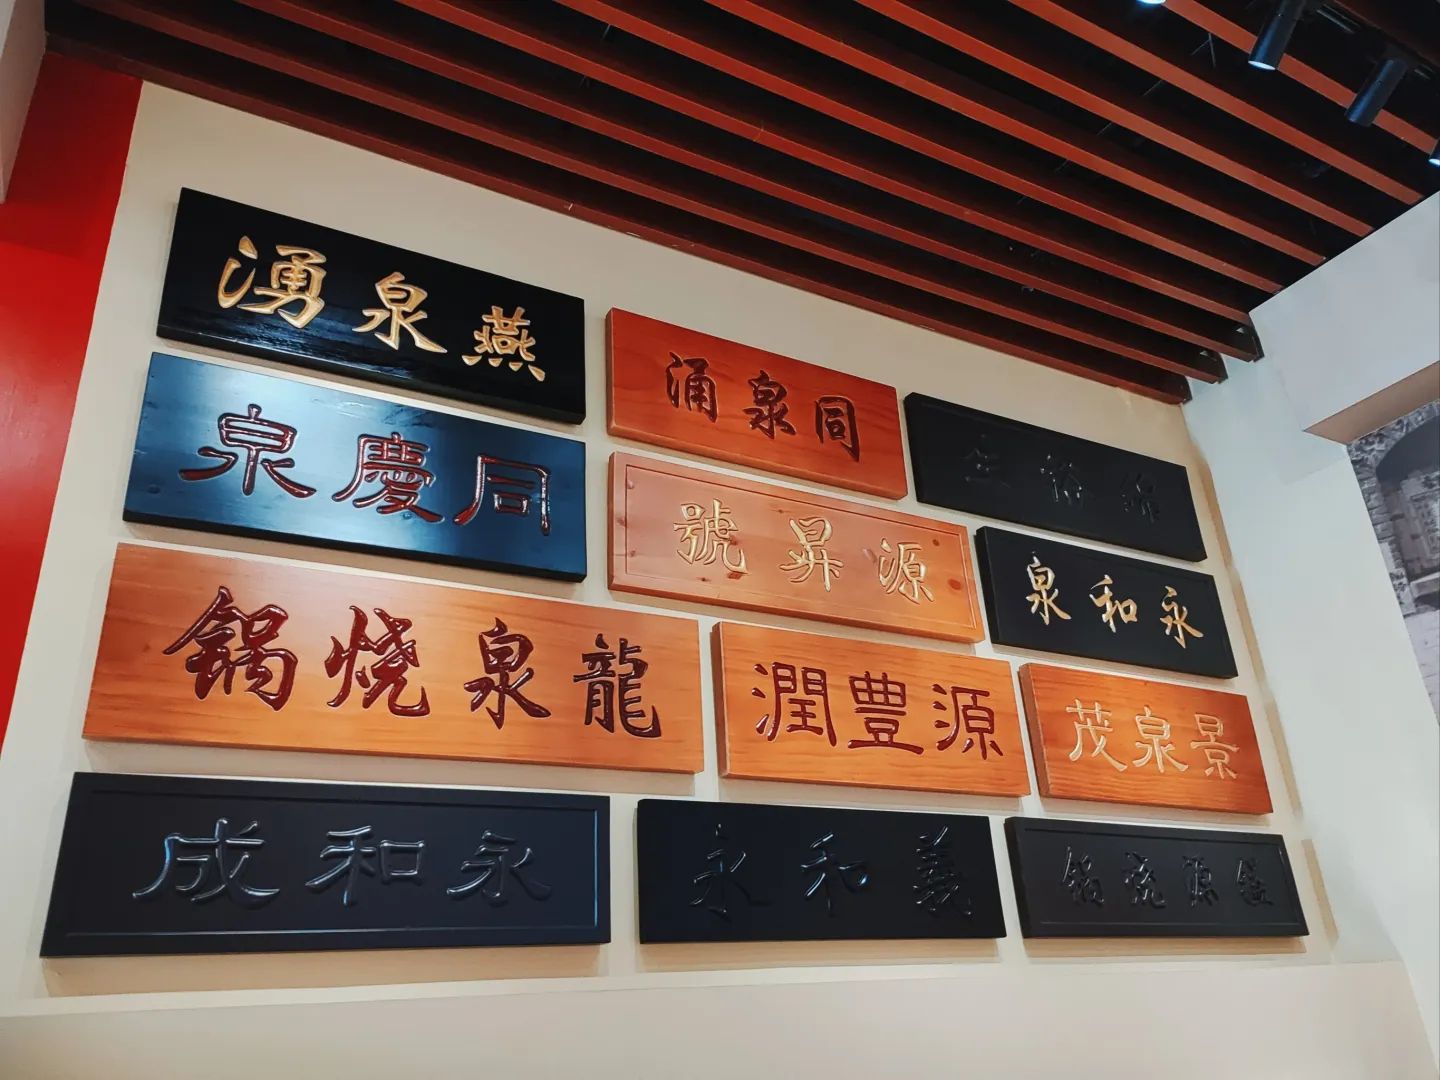 燕泉湧
同泉涌
同慶泉
源昇號
永和泉
龍泉烧锅
源豊潤
景泉茂
永和成
義和永
源烧锅